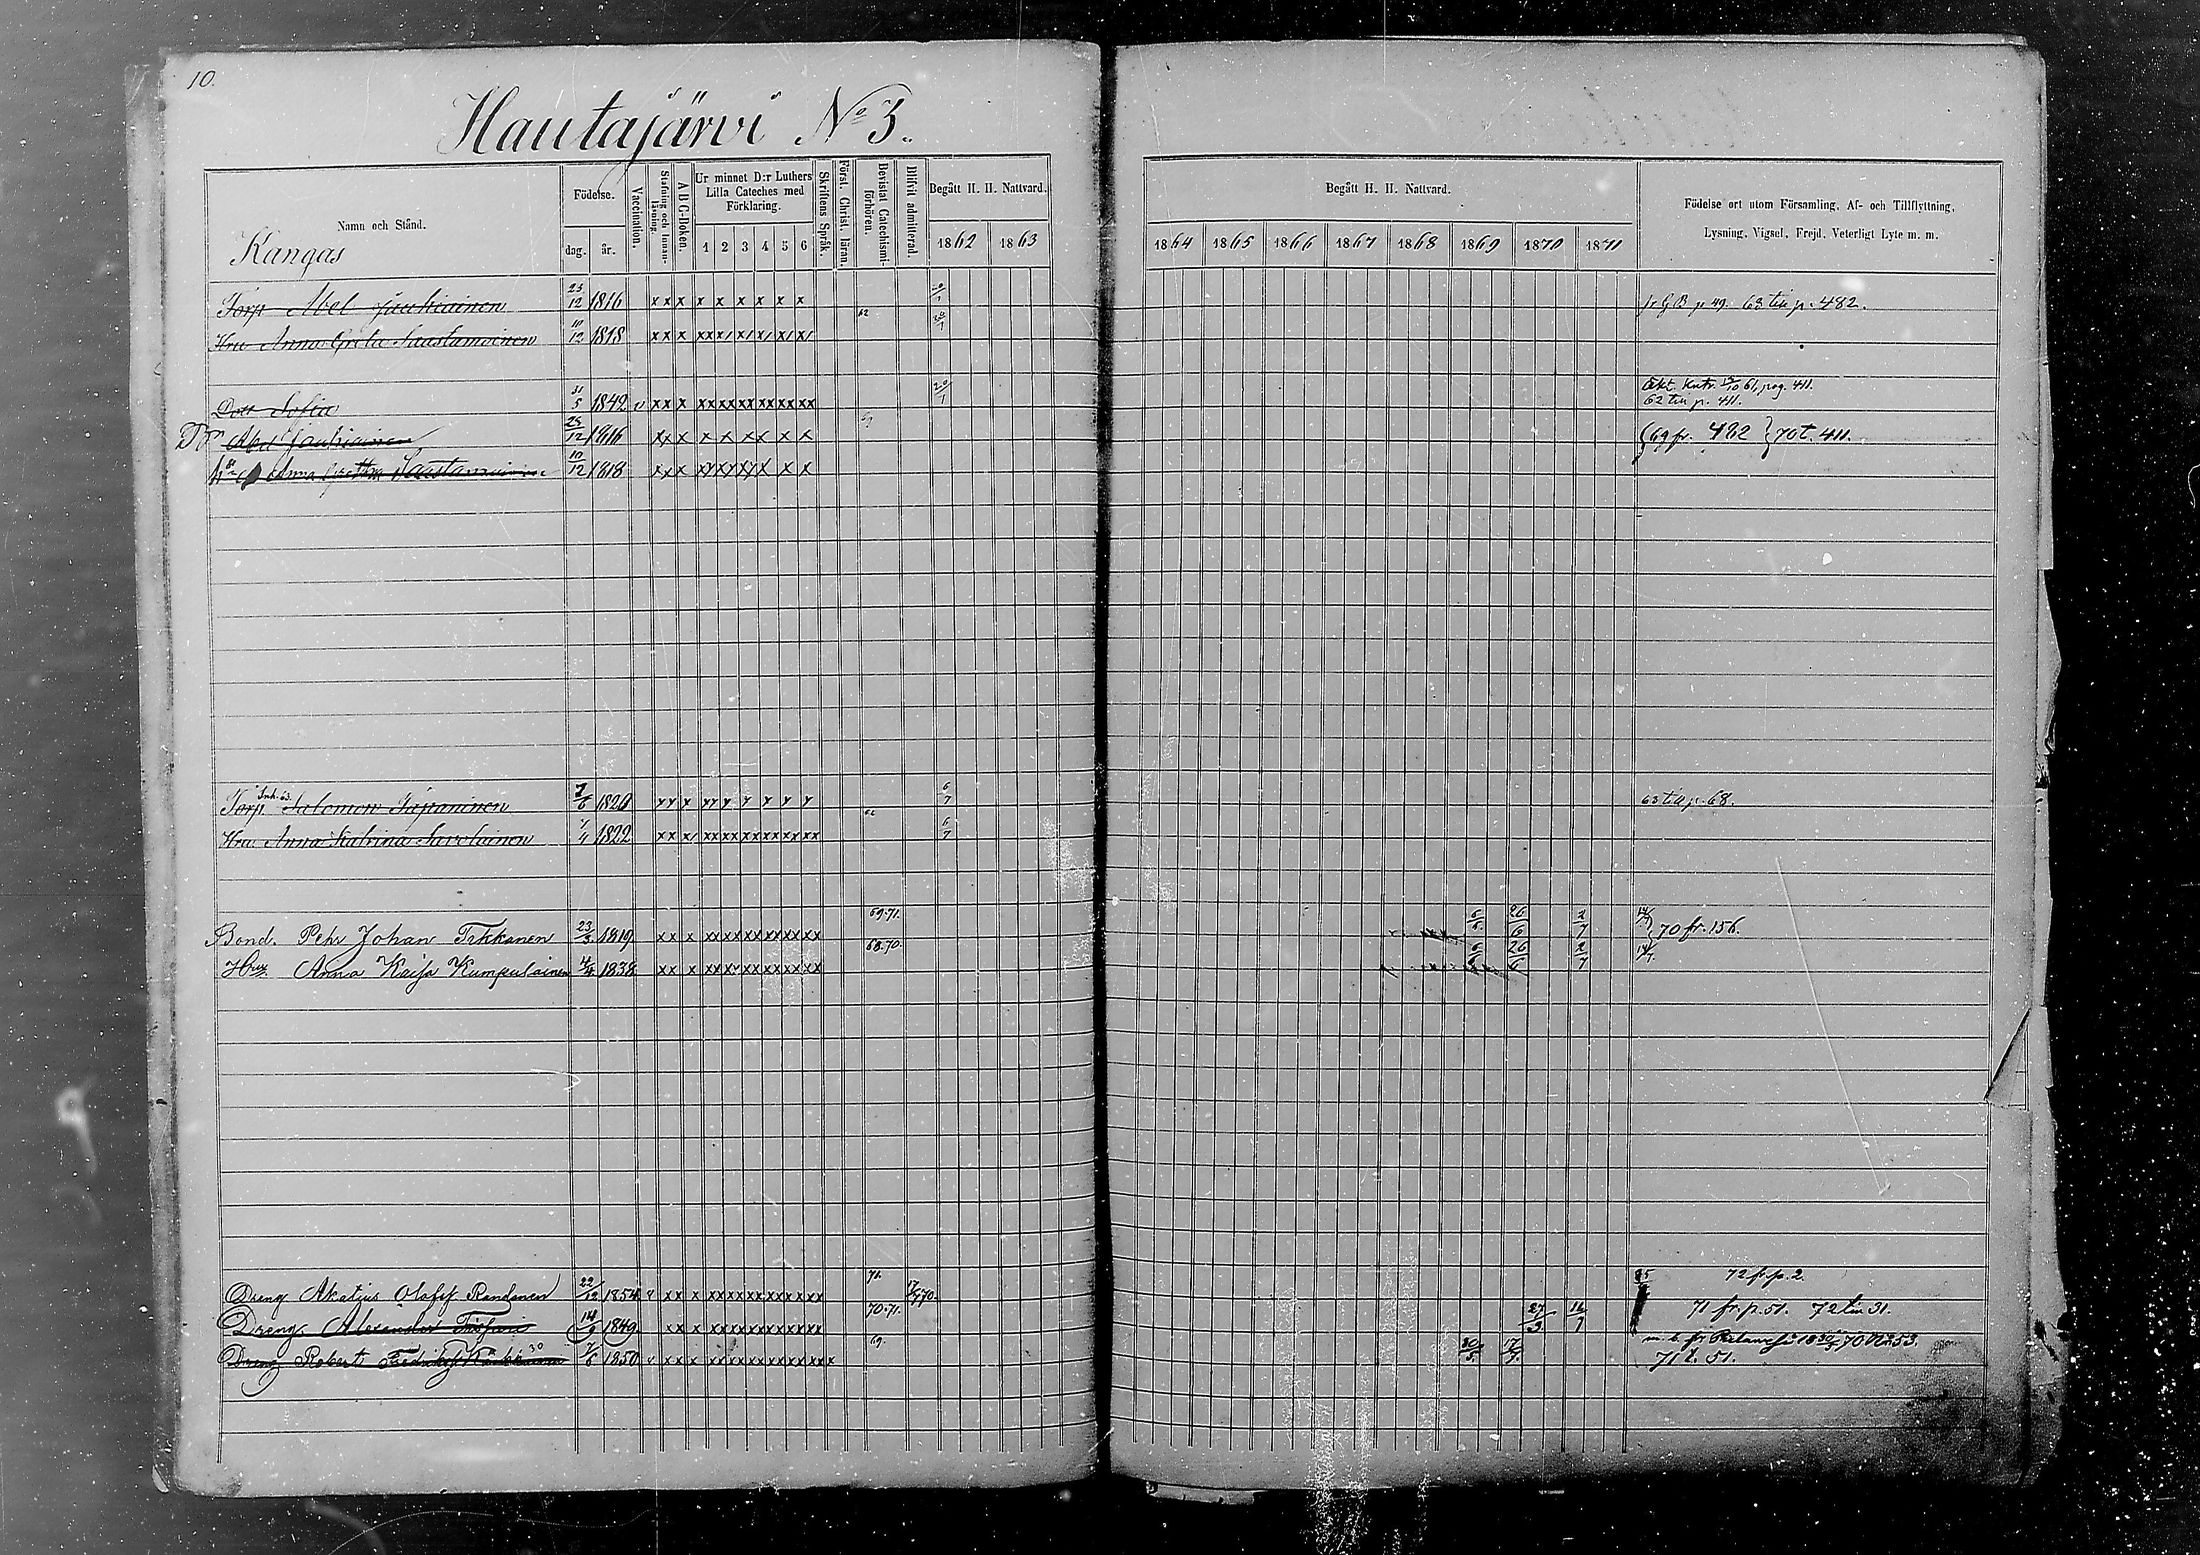 10.
Hautajärvi No 3.
Namn och Stånd.
Kangas
Födelse.
dag. år.
Vaccination.
Stafning och Innanläsning.
ABC-Boken.
Ur minnet D:r Luthers Lilla Cateches med Förklaring.
1 2 3 4 5 6
Skriftens Språk.
Först. Christ. läran.
Bevistat Catechismiförhören.
Blifvit admitterad.
Begått H. H. Nattvard.
1862 1863
Begått H. H. Nattvard.
1864 1865 1866 1867 1868 1869 1870 1871
Födelse ort utom Församling, Af- och Tillflyttning,
Lysning, Vigsel, Frejd, Veterligt Lyte m. m.
Torp Abel Jauhiainen 23/12 1816 x x x x x x x x x fr G B p 49. 63 till p. 482.
Hru Anna Greta Saastamoinen 11/12 1818 62
Dott Sofia 31/5 1842 v 20/1 61, pag. 411.
62 till p. 411.
Abel Jauhiainen 23/12 1816 69 fr. 482 70 t. 411.
Anna Saastamoinen 10/12 1818
Torp Salomon Tapaninen 7/6 1820 6/7 63 till p. 68.
Hru Anna Katrina Savolainen 1/4 1822 6/7
Bond. Pehr Johan Tikkanen 23/3 1819 69.71. 6/6 26/6 2/7 70 fr. 156.
Hru Anna Kaisa Kumpulainen 4/4 1838 68.70. 6/6 26/6 2/7
Dreng Akatius Olofsf Randanen 22/12 1854 v 71. 72 fr. p. 2.
Dreng Alexander 14/9 1849 70.71. 27/3 16/7 71 fr. p. 51. 72 till 31.
Dreng Robert 7/6 1850 v 69. 30/5 17/7 70 No 53.
71 t. 51.